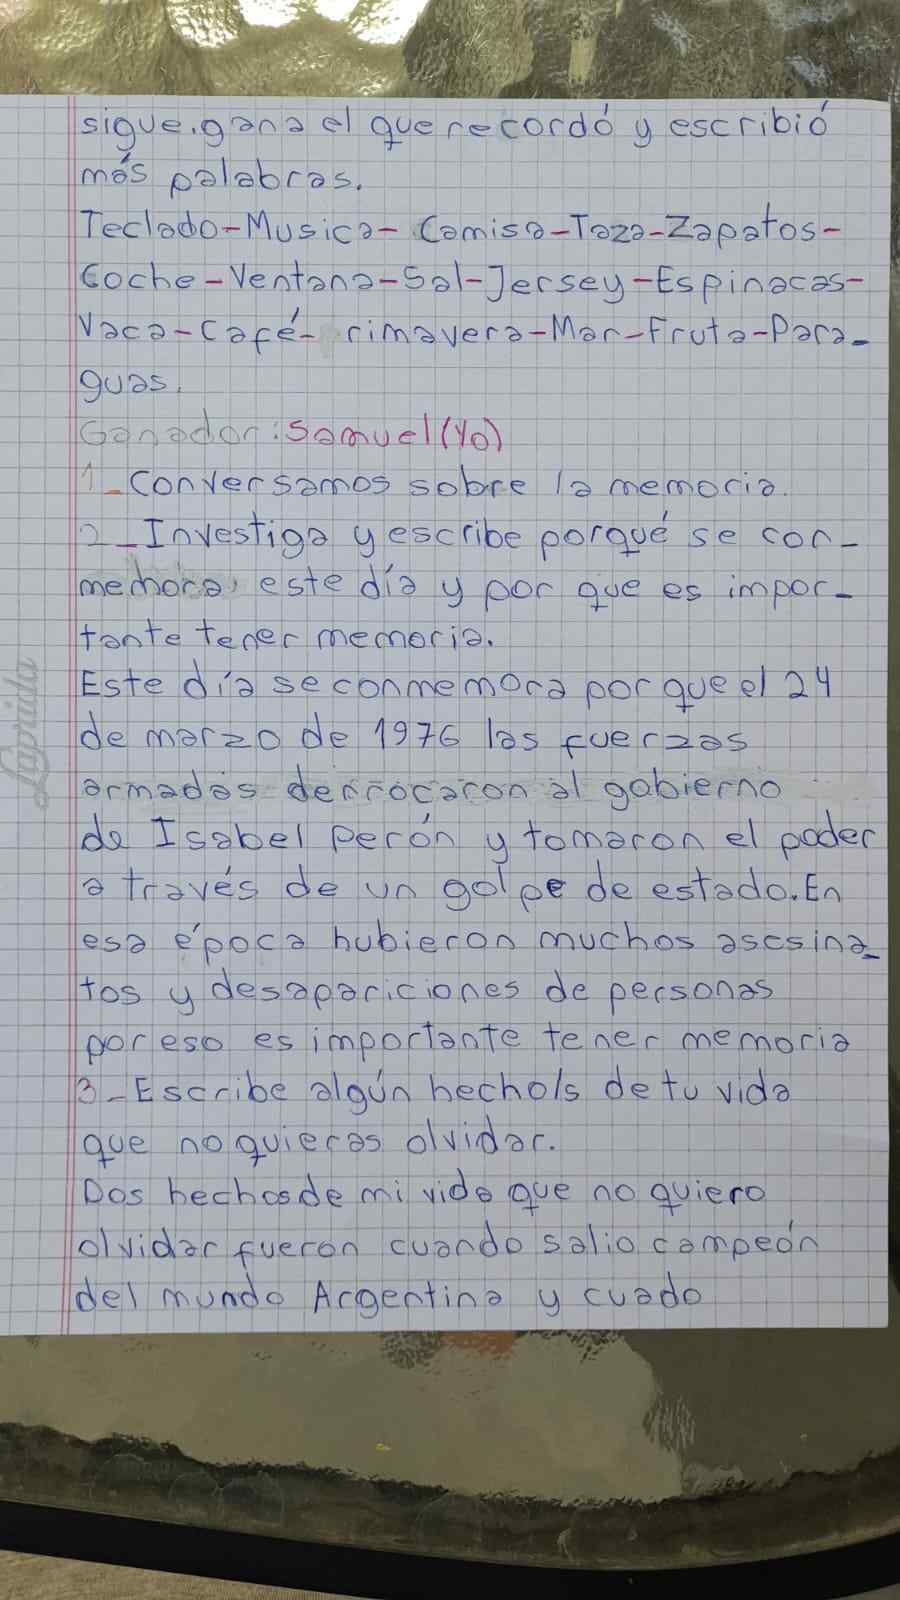 sigue. gana el que recordó y escribió
más palabras.
Teclado-Musica- Camisa-Taza-Zapatos-
Coche-Ventana-Sal-Jersey-Espinacas-
Vaca-Café- rimavera-Mar-Fruta-Para_
guas.
Ganador: Samuel (Yo)
1_Conversamos sobre la memoria.
2_Investiga y escribe porqué se con_
memora este día y por que es impor_
tante tener memoria.
Este día se conmemora por que el 24
de marzo de 1976 las fuerzas
armadas derrocaron al gobierno
de Isabel Perón y tomaron el poder
a través de un golpe de estado. En
esa época hubieron muchos asesina_
tos y desapariciones de personas
por eso es importante tener memoria
3_Escribe algún hecho/s de tu vida
que no quieras olvidar.
Dos hechos de mi vida que no quiero
olvidar fueron cuando salio campeón
del mundo Argentina y cuado
Laprida